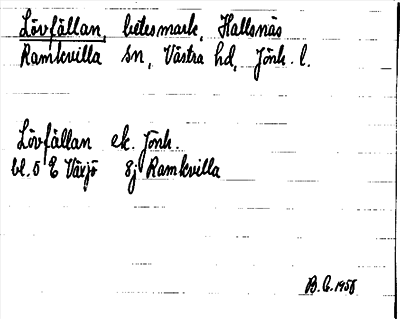 Lövfällan, betesmark, Hallsnäs
Ramkvilla sn, Västra hd, Jönk. l.
Lövfällan ek. Jönk.
bl. 5 E Växjö 8j Ramkvilla
B. G. 1958